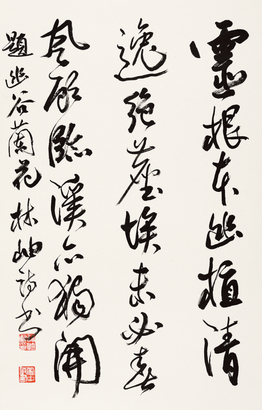 靈根本幽植清
逸絕塵埃未必春
風顧臨溪亦獨開
題幽谷蘭花 林岫詩書